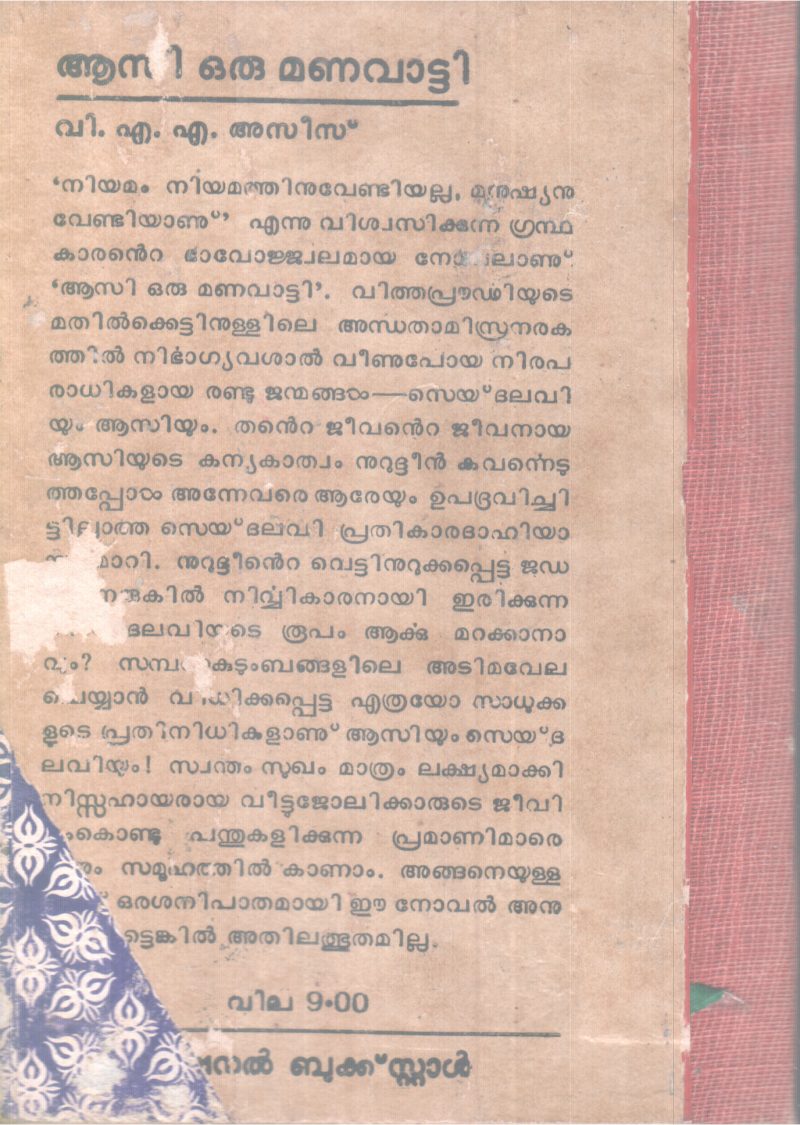 ആസി ഒരു മണവാട്ടി
വി. എ. എ. അസീസ്
‘നിയമം നിയമത്തിനുവേണ്ടിയല്ല, മനുഷ്യനു
വേണ്ടിയാണു്’ എന്നു വിശ്വസിക്കുന്ന ഗ്രന്ഥ
കാരൻെറ ഭാവോജ്ജ്വലമായ നോവലാണു്
‘ആസി ഒരു മണവാട്ടി’. വിത്തപ്രൗഢിയുടെ
മതിൽക്കെട്ടിനുള്ളിലെ അന്ധതാമിസ്രനരക
ത്തിൽ നിർഭാഗ്യവശാൽ വീണുപോയ നിരപ
രാധികളായ രണ്ടു ജന്മങ്ങൾ—സെയ്ദലവി
യും ആസിയും. തൻെറ ജീവൻെറ ജീവനായ
ആസിയുടെ കന്യകാത്വം നുറുദ്ദീൻ കവർന്നെടു
ത്തപ്പോൾ അന്നേവരെ ആരേയും ഉപദ്രവിച്ചി
ട്ടില്ലാത്ത സെയ്ദലവി പ്രതികാരദാഹിയാ
മാറി. നുറുദ്ദീൻെറ വെട്ടിനുറുക്കപ്പെട്ട ജഡ
നരുകിൽ നിർവ്വികാരനായി ഇരിക്കുന്ന
ദലവിയുടെ രൂപം ആർക്കു മറക്കാനാ
വും? സമ്പന്നകുടുംബങ്ങളിലെ അടിമവേല
ചെയ്യാൻ വിധിക്കപ്പെട്ട എത്രയോ സാധുക്ക
ളുടെ പ്രതിനിധികളാണു് ആസിയും സെയ്ദ
ലവിയും! സ്വന്തം സുഖം മാത്രം ലക്ഷ്യമാക്കി
നിസ്സഹായരായ വീട്ടുജോലിക്കാരുടെ ജീവി
കൊണ്ടു പന്തുകളിക്കുന്ന പ്രമാണിമാരെ
സമൂഹത്തിൽ കാണാം. അങ്ങനെയുള്ള
ഒരശനിപാതമായി ഈ നോവൽ അനു
ട്ടെങ്കിൽ അതിലത്ഭുതമില്ല.
വില 9·00
ബുക്ക്സ്റ്റാൾ